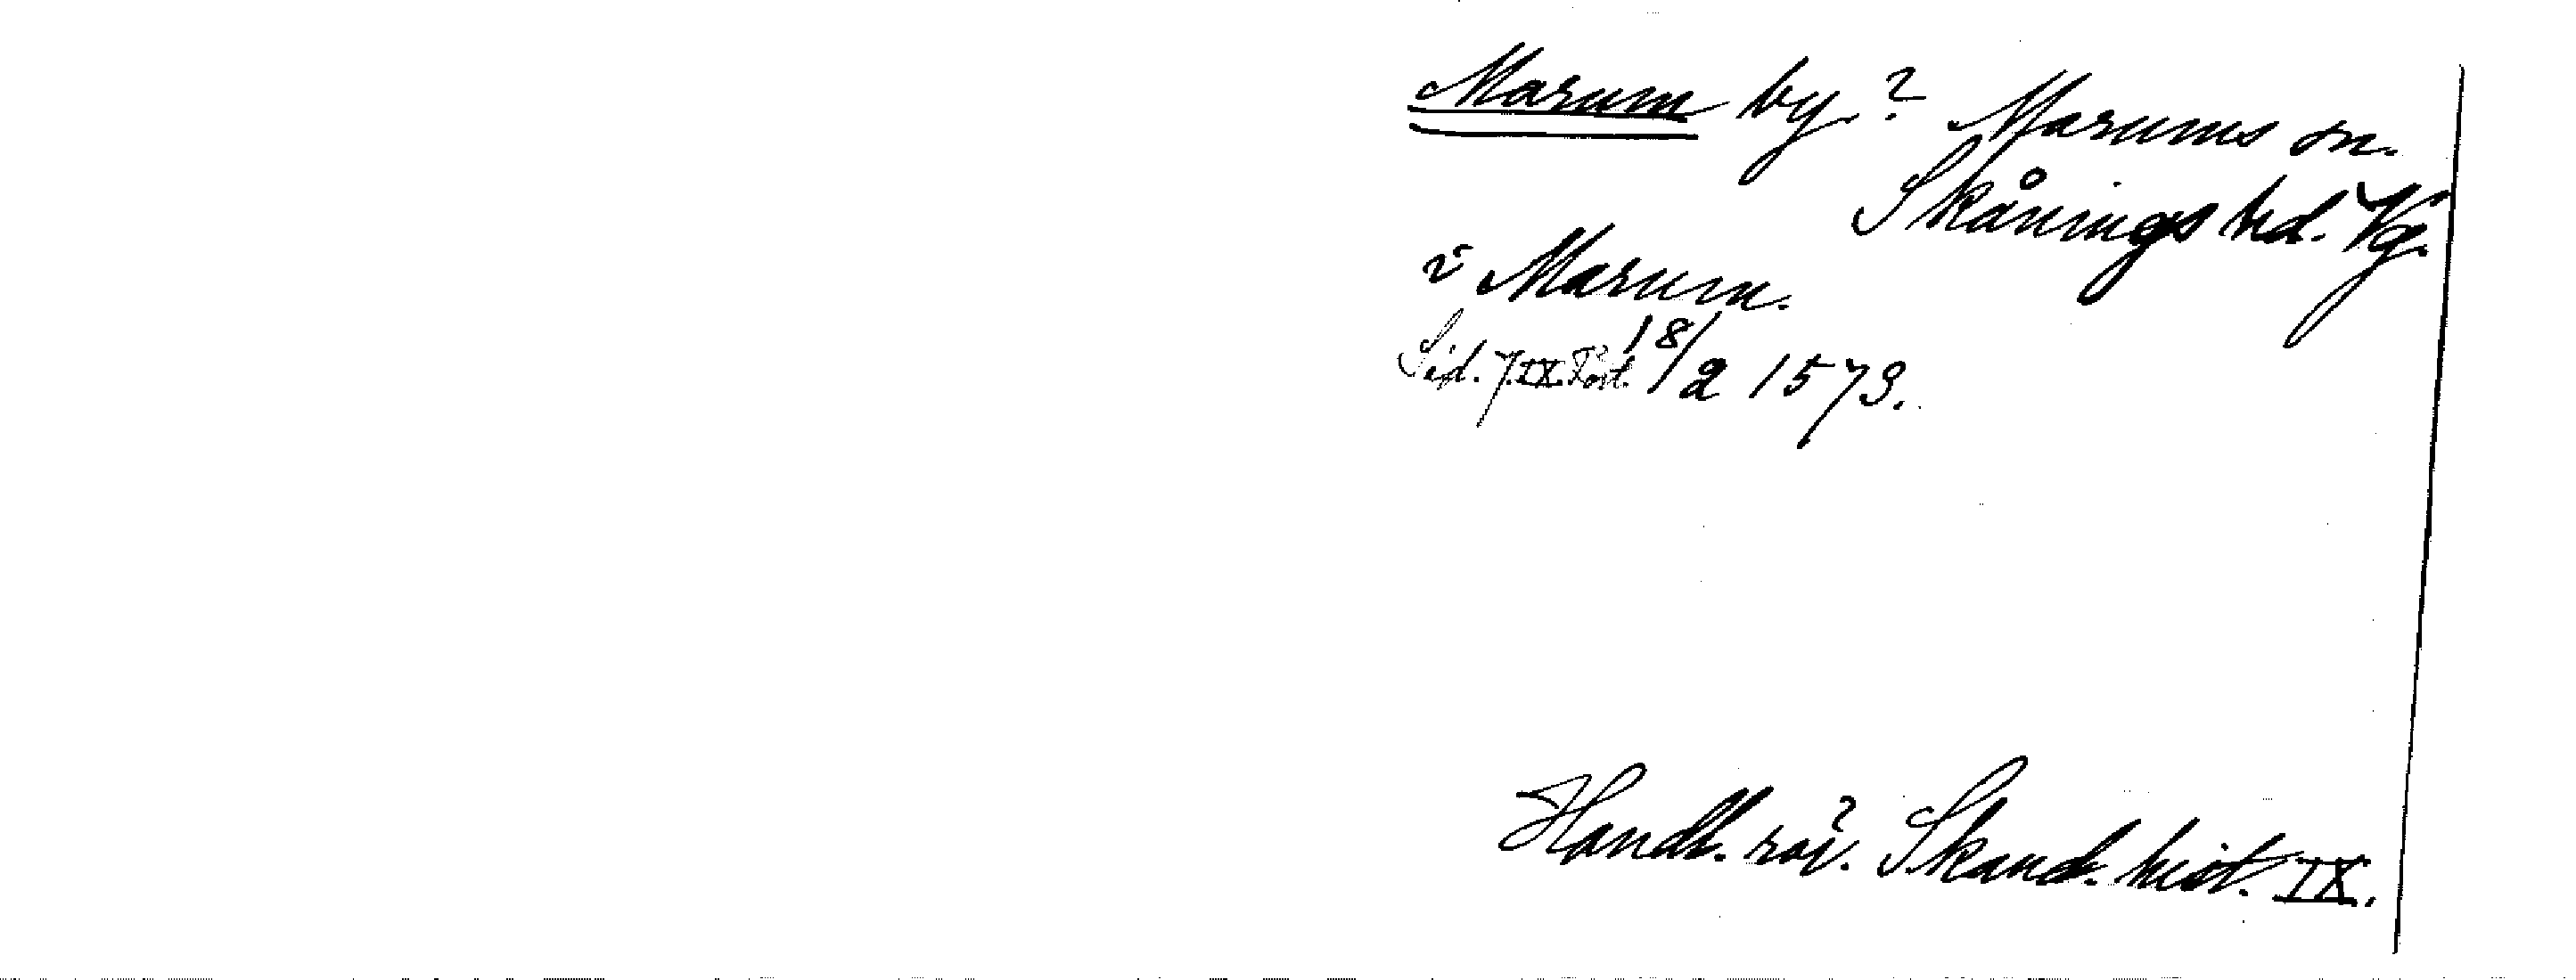 Marum by.? Marums sn.
Skånings hd. Vg.
i Marum.
Sid. 7. IX. Fört. 18/2 1573.
Handl. rör. Skand. hist. IX.